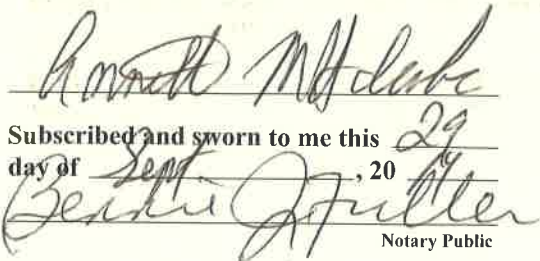 Annett
Subscribed and sworn to me this 29
day of Sept. , 20 14
Bennie J Fuller
Notary Public